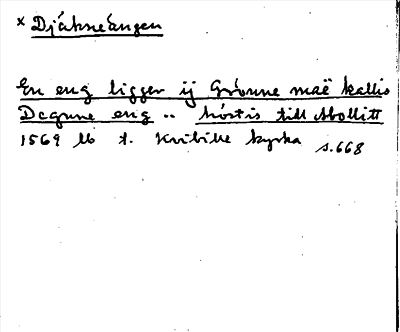 x Djäkneängen
En eng ligger ij Grönne maë kallis
Degnne eng .. hörtis till Abollitt
1569 lb t. Kvibille kyrka s.668